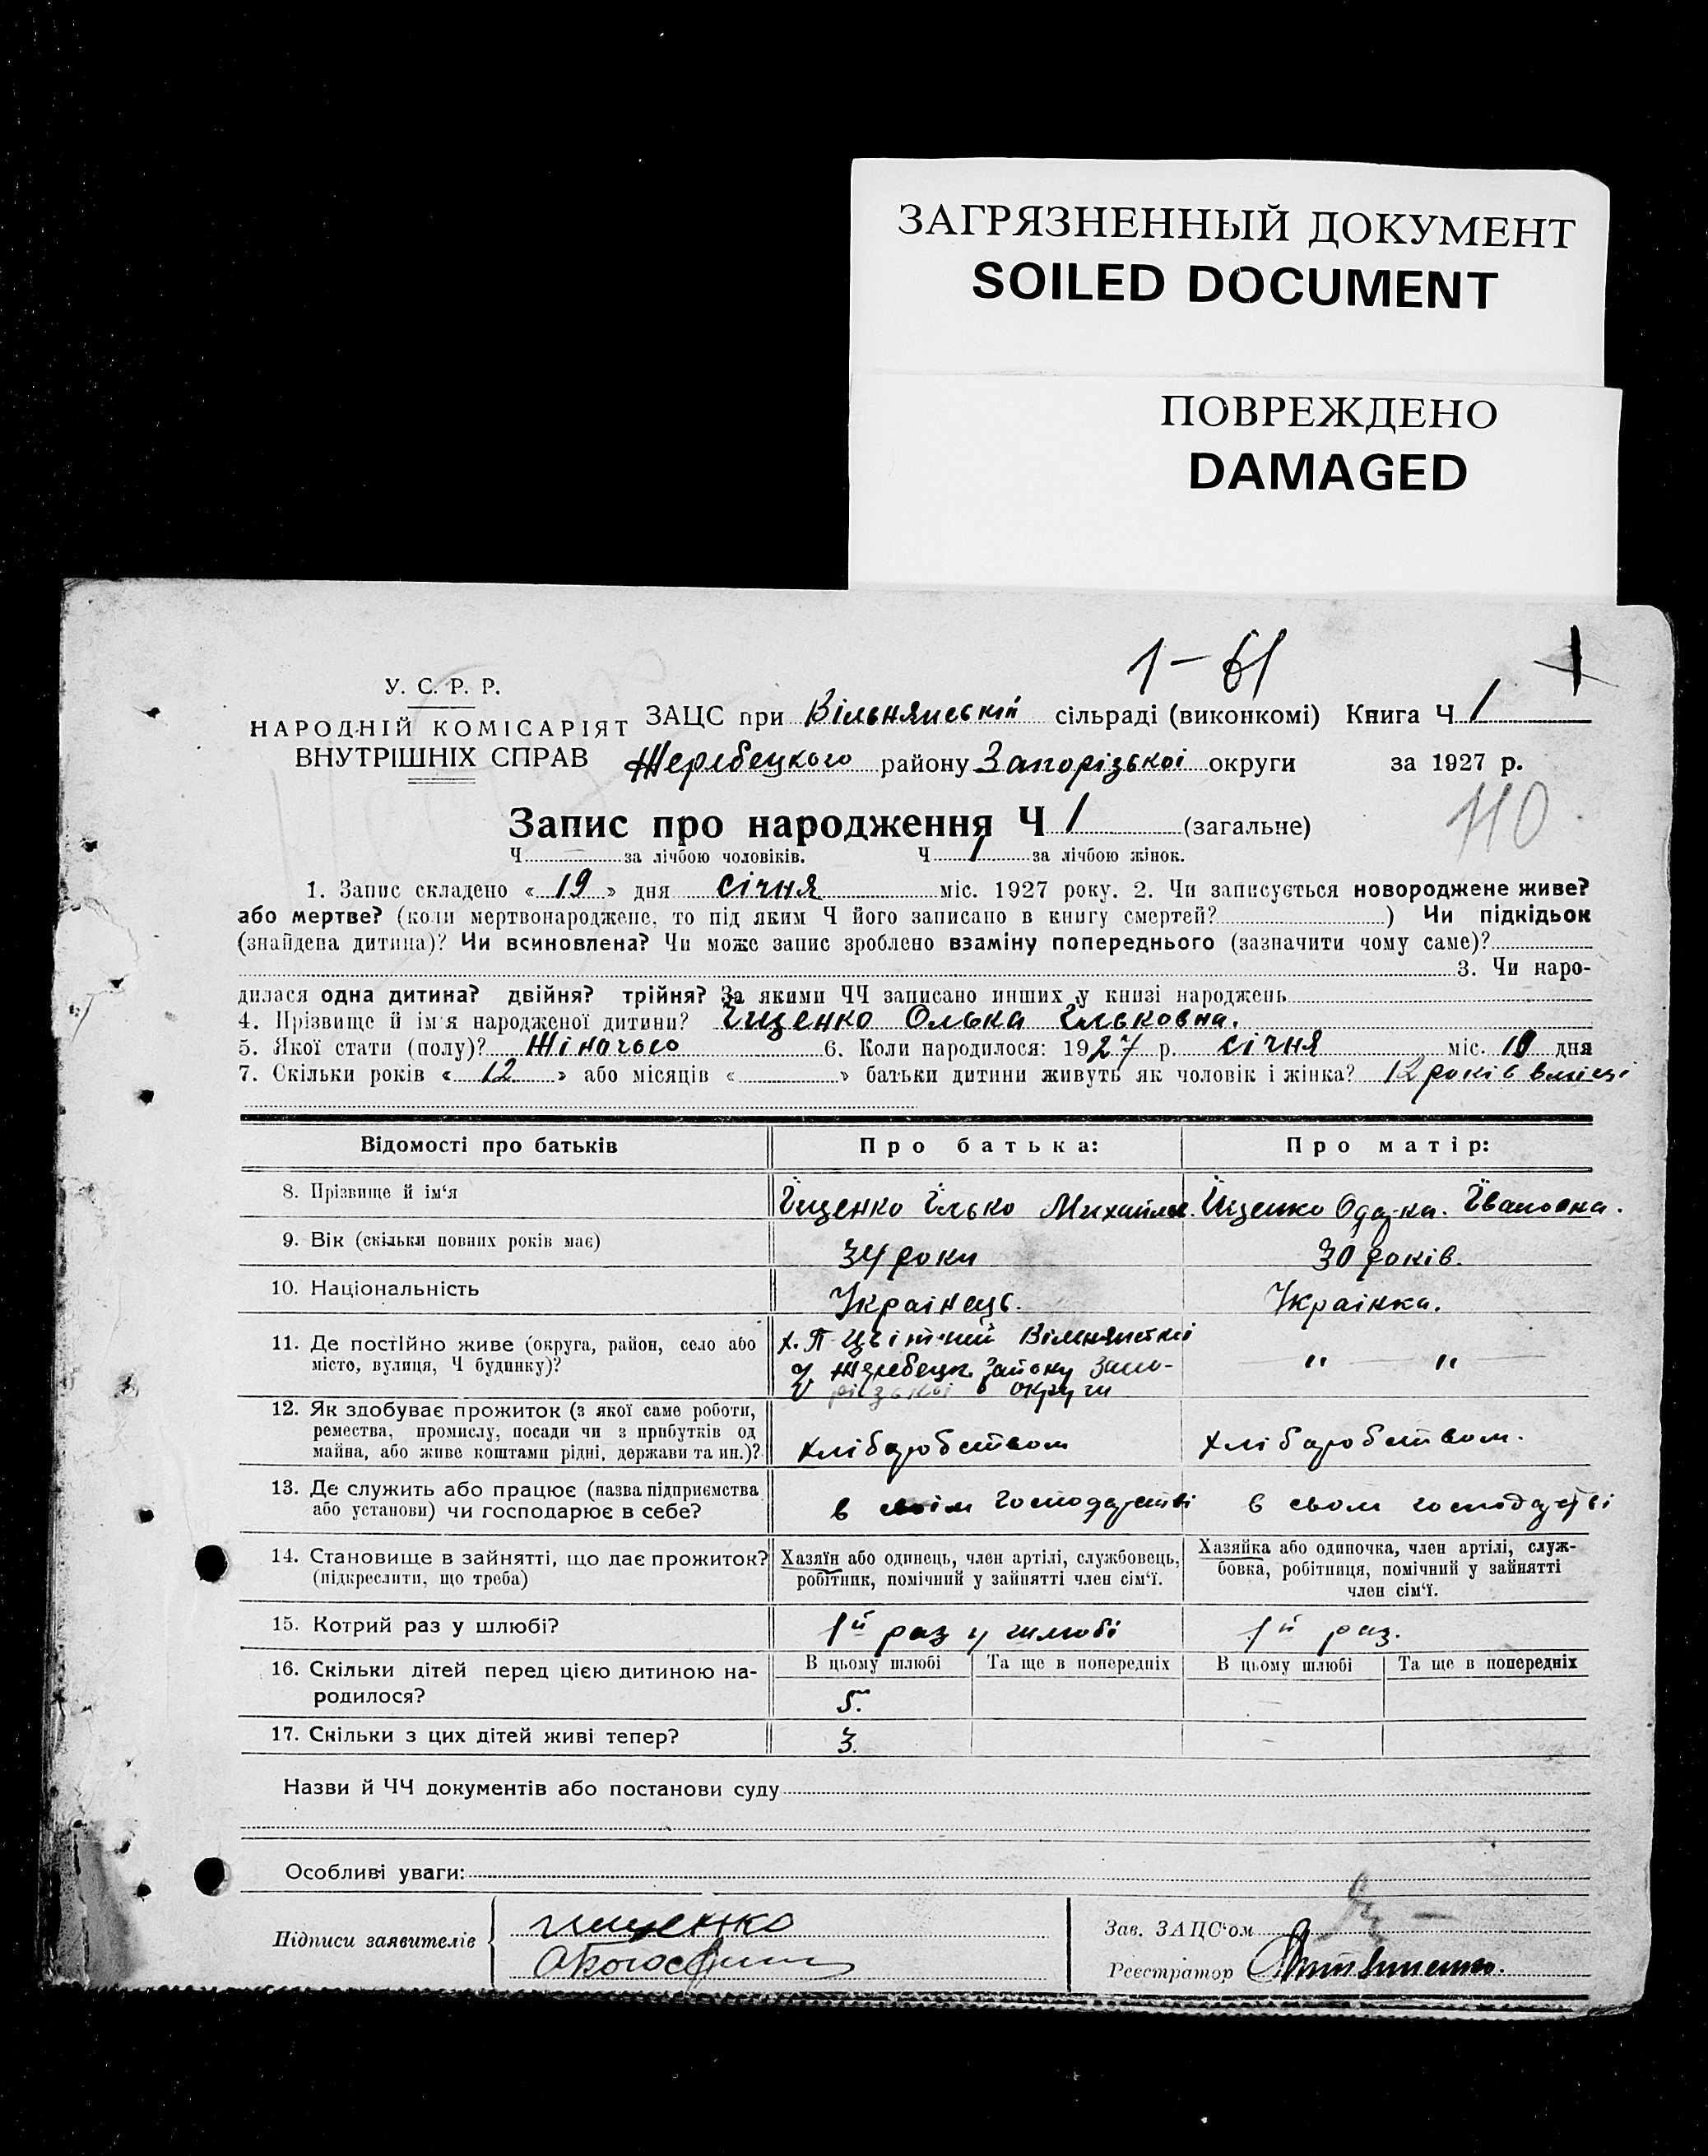 ЗАГРЯЗНЕННЫЙ ДОКУМЕНТ
SOILED DOCUMENT
ПОВРЕЖДЕНО
DAMAGED
1–61
У. С. Р. Р.
НАРОДНІЙ КОМІСАРІЯТ
ВНУТРІШНІХ СПРАВ
ЗАЦС при Вільнянській сільраді (виконкомі) Книга Ч 1
Жеребецкого району Запорізької округи за 1927 р.
110
Запис про народження Ч 1 (загальне)
Ч за лічбою чоловіків. Ч 1 за лічбою жінок.
1. Запис складено « 19 » дня січня міс. 1927 року. 2. Чи записується новороджене живе?
або мертве? (коли мертвонароджене, то під яким Ч його записано в книгу смертей? ) Чи підкідьок
(знайдена дитина)? Чи всиновлена? Чи може запис зроблено взаміну попереднього (зазначити чому саме)?
3. Чи наро-
дилася одна дитина? двійня? трійня? За якими ЧЧ записано инших у книзі народжень
4. Прізвище й ім'я народженої дитини? Їщенко Олька Їльковна.
5. Якої стати (полу)? Жіночого 6. Коли народилося: 1927 р. січня міс. дня
7. Скільки років « 12 » або місяців « » батьки дитини живуть як чоловік і жінка? 12 років вмісці
Відомості про батьків Про батька: Про матір:
8. Прізвище й ім'я Їщенко Їлько Михайлов. Їщенко Одарка. Ївановна.
9. Вік (скільки повних років має) 34 роки 30 років.
10. Національність Українець. Українка.
11. Де постійно живе (округа, район, село або
місто, вулиця, Ч будинку)?
х. Жеребецк. району Запо-
різької округи
" — "
12. Як здобуває прожиток (з якої саме роботи,
ремества, промислу, посади чи з прибутків од
майна, або живе коштами рідні, держави та ин.)?
хліборобством хліборобством.
13. Де служить або працює (назва підприємства
або установи) чи господарює в себе?
в своїм господарстві в свом господарстві
14. Становище в зайнятті, що дає прожиток?
(підкреслити, що треба)
Хазяїн або одинець, член артілі, службовець,
робітник, помічний у зайнятті член сім'ї.
Хазяйка або одиночка, член артілі, служ-
бовка, робітниця, помічний у зайнятті
член сім'ї.
15. Котрий раз у шлюбі? 1й раз у шлюбі 1й раз.
16. Скільки дітей перед цією дитиною на-
родилося?
В цьому шлюбі Та ще в попередніх В цьому шлюбі Та ще в попередніх
5.
17. Скільки з цих дітей живі тепер? 3.
Назви й ЧЧ документів або постанови суду
Особливі уваги:
Підписи заявителів
Ищенко
Зав. ЗАЦС'ом
Реєстратор